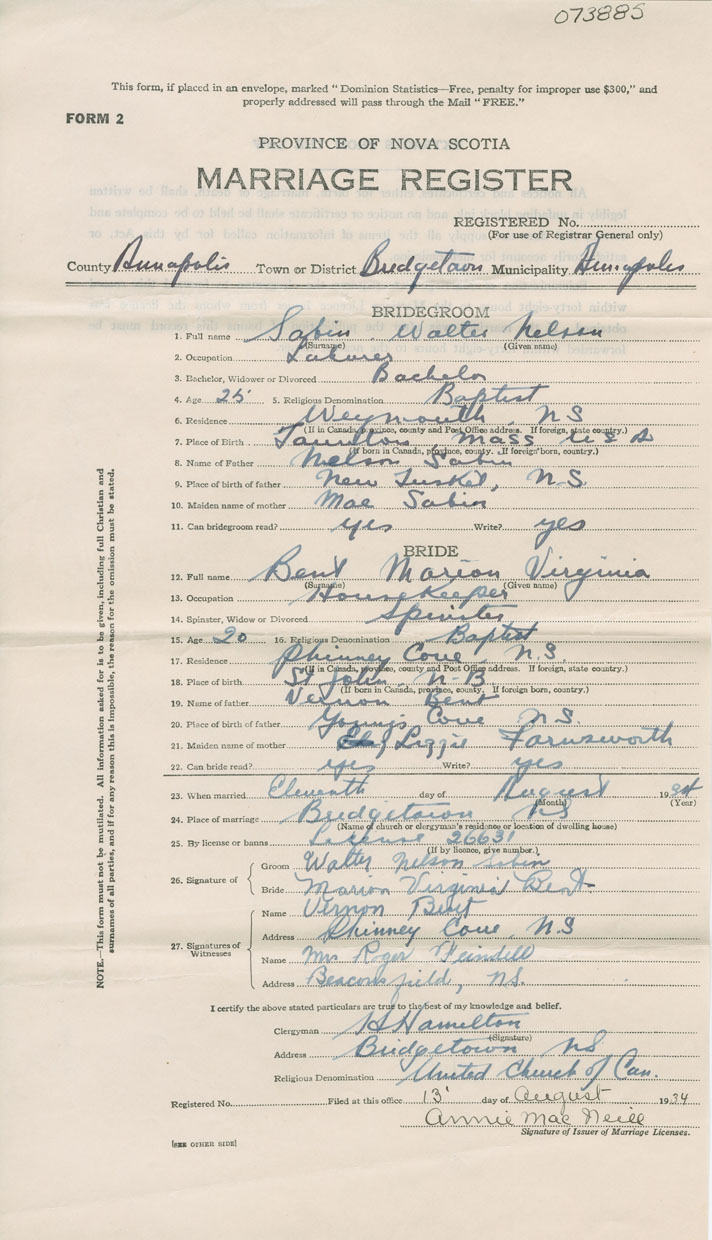 073885
This form, if placed in an envelope, marked "Dominion Statistics—Free, penalty for improper use $300," and
properly addressed will pass through the Mail "FREE."
FORM 2
PROVINCE OF NOVA SCOTIA
MARRIAGE REGISTER
REGISTERED No.
(For use of Registrar General only)
County Annapolis Town or District Bridgetown Municipality Annapolis
BRIDEGROOM
1. Full name Sabin Walter Nelson
(Surname) (Given name)
2. Occupation Laborer
3. Bachelor, Widower or Divorced Bachelor
4. Age 25 5. Religious Denomination Baptist
6. Residence Weymouth, NS
(If in Canada, province, county and Post Office address. If foreign, state country.)
7. Place of Birth Taunton, Mass U S A
(If born in Canada, province, county. If foreign born, country.)
8. Name of Father Nelson Sabin
9. Place of birth of father New Tusket, N.S.
10. Maiden name of mother Mae Sabin
11. Can bridegroom read? yes Write? yes
BRIDE
12. Full name Bent Marion Virginia
(Surname) (Given name)
13. Occupation Housekeeper
14. Spinster, Widow or Divorced Spinster
15. Age 20 16. Religious Denomination Baptist
17. Residence Phinney Cove, N.S.
(If in Canada, province, county and Post Office address. If foreign, state country.)
18. Place of birth St John, N-B
(If born in Canada, province, county. If foreign born, country.)
19. Name of father Vernon Bent
20. Place of birth of father Youngs Cove N.S.
21. Maiden name of mother Lizzie Farnsworth
22. Can bride read? yes Write? yes
23. When married Eleventh day of August 1934
(Month) (Year)
24. Place of marriage Bridgetown NS
(Name of church or clergyman's residence or location of dwelling house)
25. By license or banns License 26631
(If by licence, give number.)
26. Signature of
Groom Walter Nelson Sabin
Bride Marion Virginia Bent
27. Signatures of Witnesses
Name Vernon Bent
Address Phinney Cove, N.S
Name Mrs Roger Feindell
Address Beaconsfield, N.S.
I certify the above stated particulars are true to the best of my knowledge and belief.
Clergyman Hamilton
(Signature)
Address Bridgetown NS
Religious Denomination United Church of Can.
Registered No. Filed at this office 13 day of August 1934
Annie MacNeill
Signature of Issuer of Marriage Licenses.
[SEE OTHER SIDE]
NOTE.—This form must not be mutilated. All information asked for is to be given, including full Christian and
surnames of all parties, and if for any reason this is impossible, the reason for the omission must be stated.